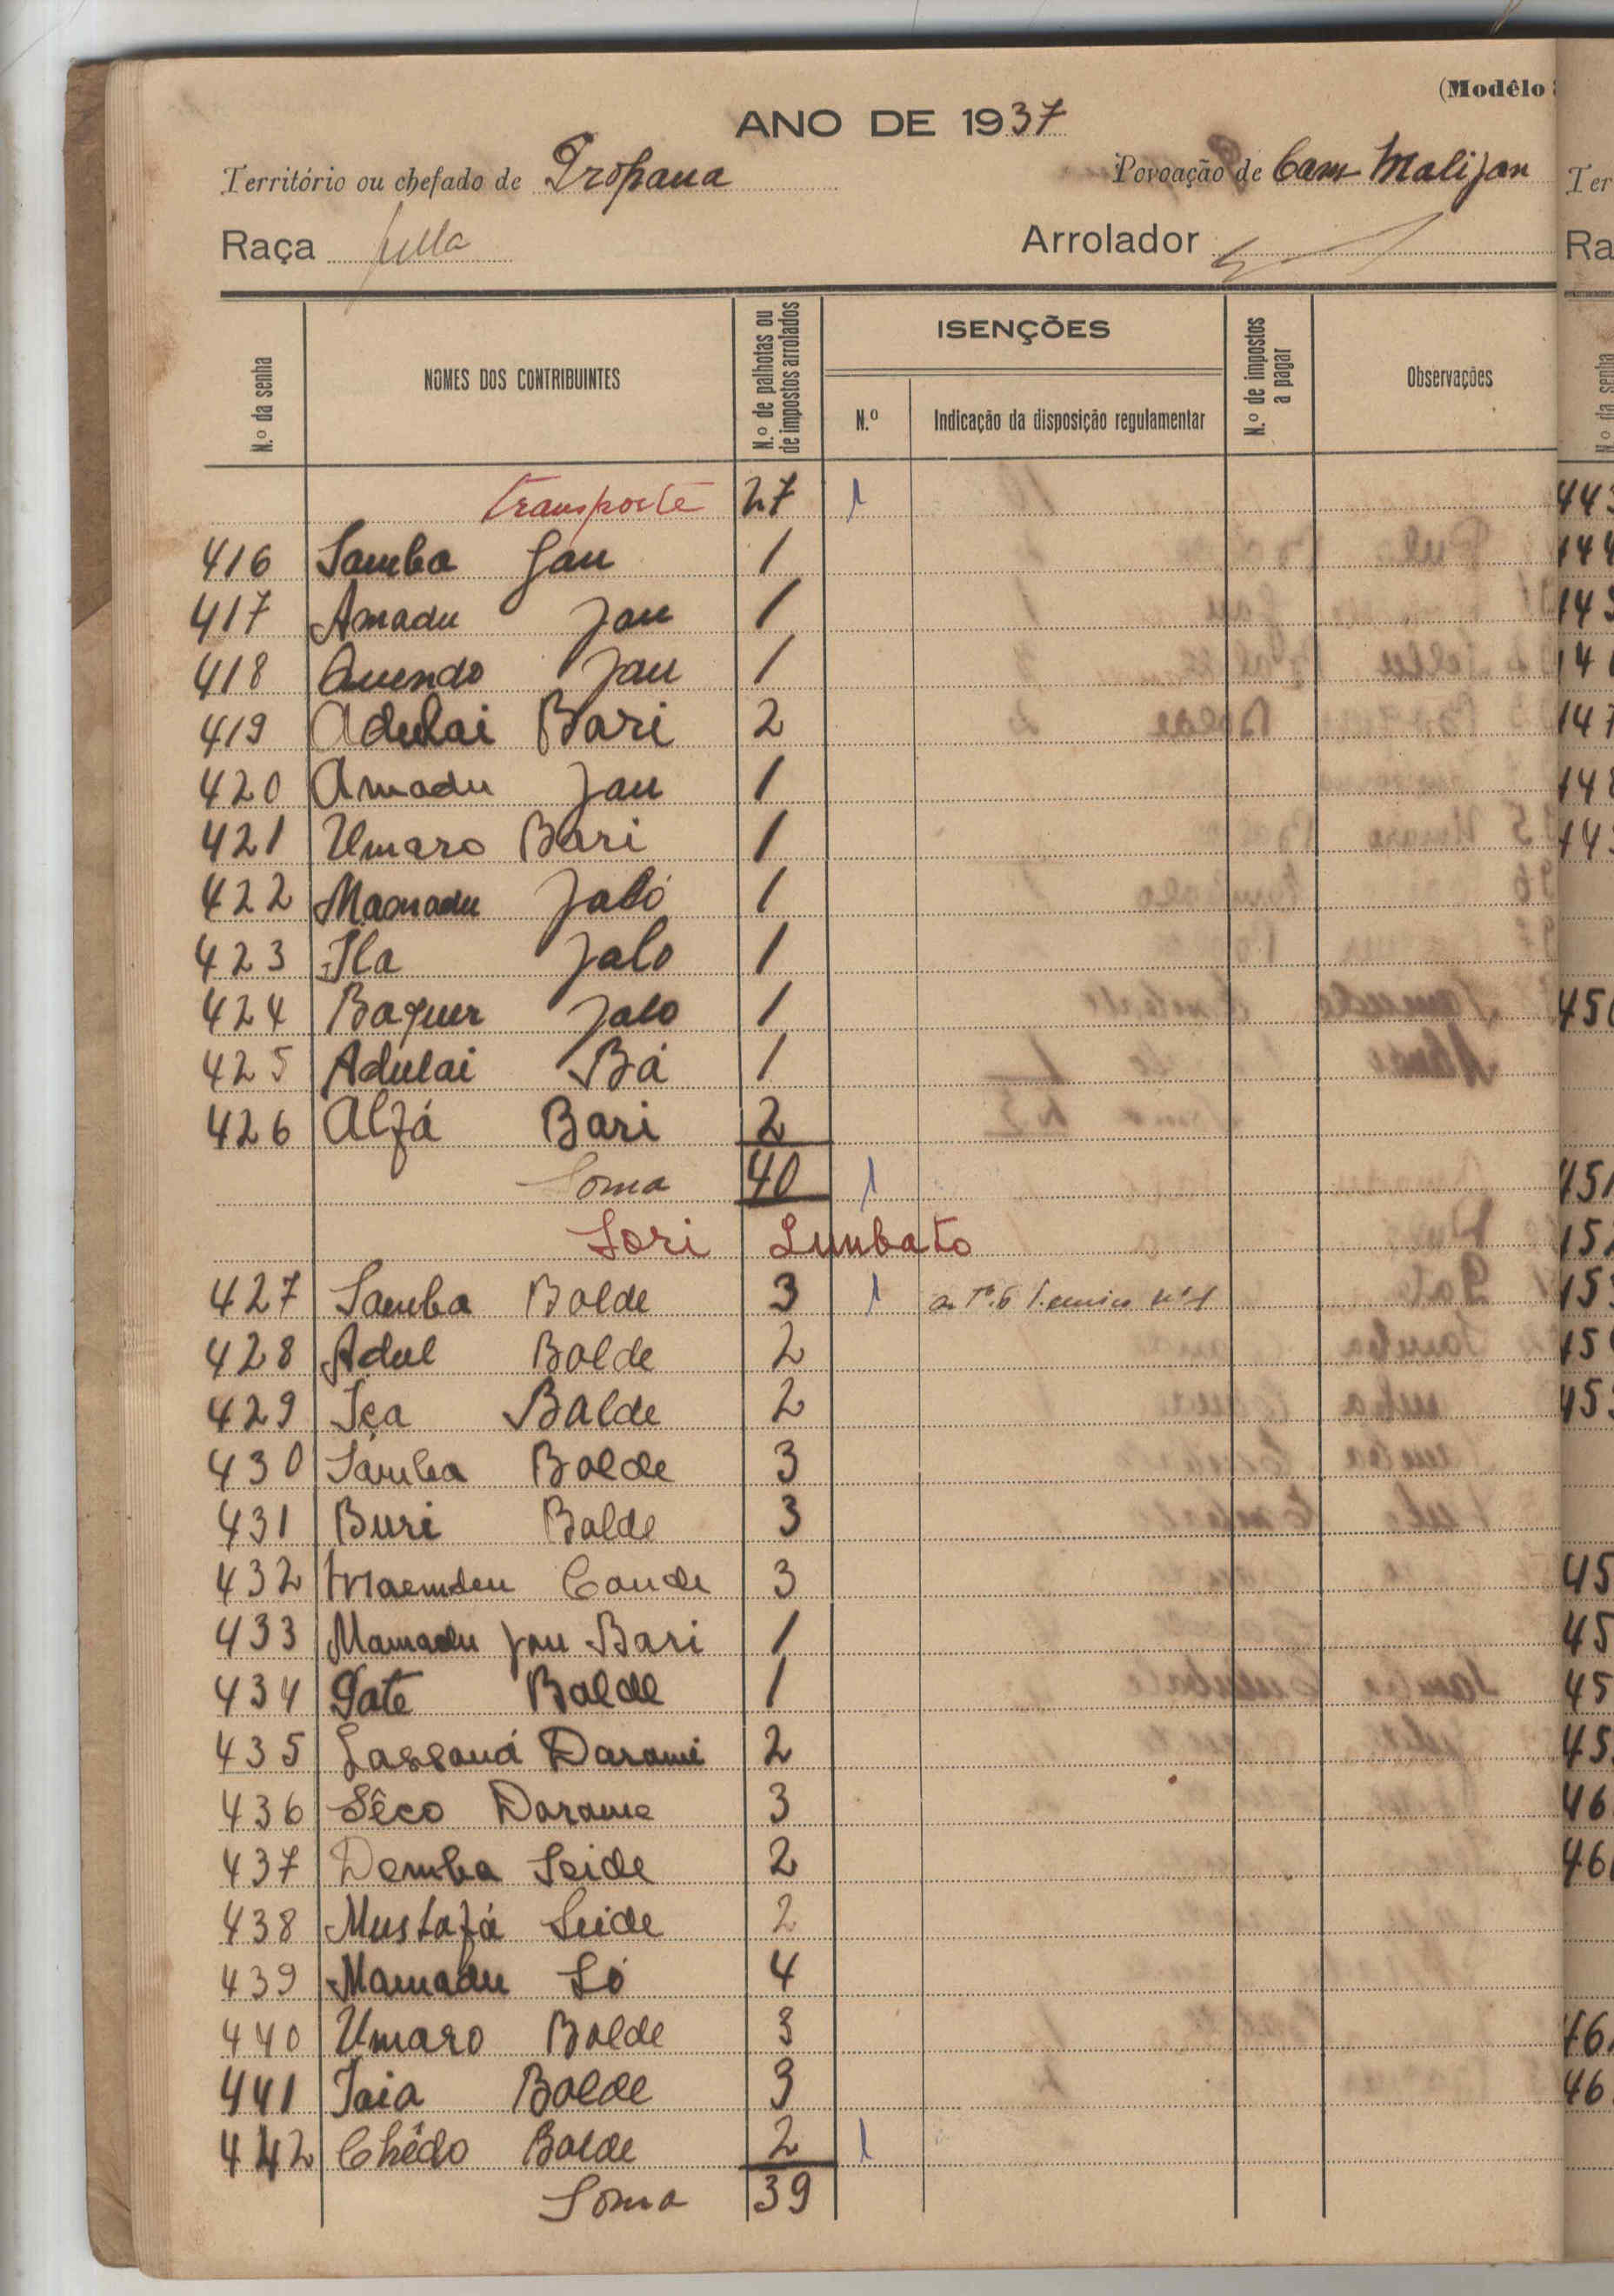 (Modêlo
ANO DE 1937
Território ou chefado de Propana Povoação de Cam Malijan
Raça fulla Arrolador
N.º da senha NOMES DOS CONTRIBUINTES N.º de palhotas ou de impostos arrolados ISENÇÕES N.º de impostos a pagar Observações
N.º Indicação da disposição regulamentar
transporte 27 1
416 Samba Jau 1
417 Amadu Jau 1
418 Quendo Jau 1
419 Adulai Bari 2
420 Amadu Jau 1
421 Umaro Bari 1
422 Mamadu Jaló 1
423 Ila Jalo 1
424 Baquer Jalo 1
425 Adulai Bá 1
426 Alfá Bari 2
Soma 40 1
Sori Lumbato
427 Samba Balde 3 1
428 Adul Balde 2
429 Iça Balde 2
430 Samba Balde 3
431 Buri Balde 3
432 Cande 3
433 Mamadu Jau Bari 1
434 Pate Balde 1
435 Lassaná Darami 2
436 Sêco Darame 3
437 Demba Seide 2
438 Mustafá Seide 2
439 Mamadu Só 4
440 Umaro Balde 3
441 Iaia Balde 3
442 Chêdo Balde 2 1
Soma 39